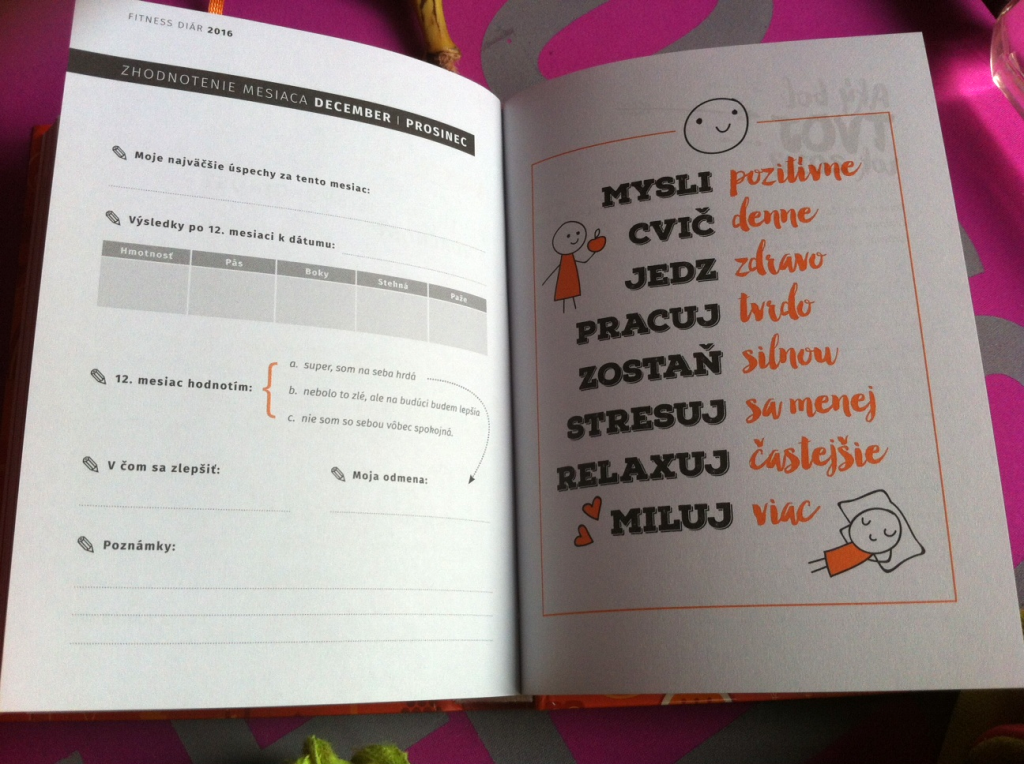 FITNESS DIÁR 2016
ZHODNOTENIE MESIACA DECEMBER | PROSINEC
Moje najväčšie úspechy za tento mesiac:
Výsledky po 12. mesiaci k dátumu:
Hmotnosť Pás Boky Stehná Paža
12. mesiac hodnotím:
a. super, som na seba hrdá
b. nebolo to zlé, ale na budúci budem lepšia
c. nie som so sebou vôbec spokojná.
V čom sa zlepšiť:
Moja odmena:
Poznámky:
MYSLI pozitívne
CVIČ denne
JEDZ zdravo
PRACUJ tvrdo
ZOSTAŇ silnou
STRESUJ sa menej
RELAXUJ častejšie
MILUJ viac